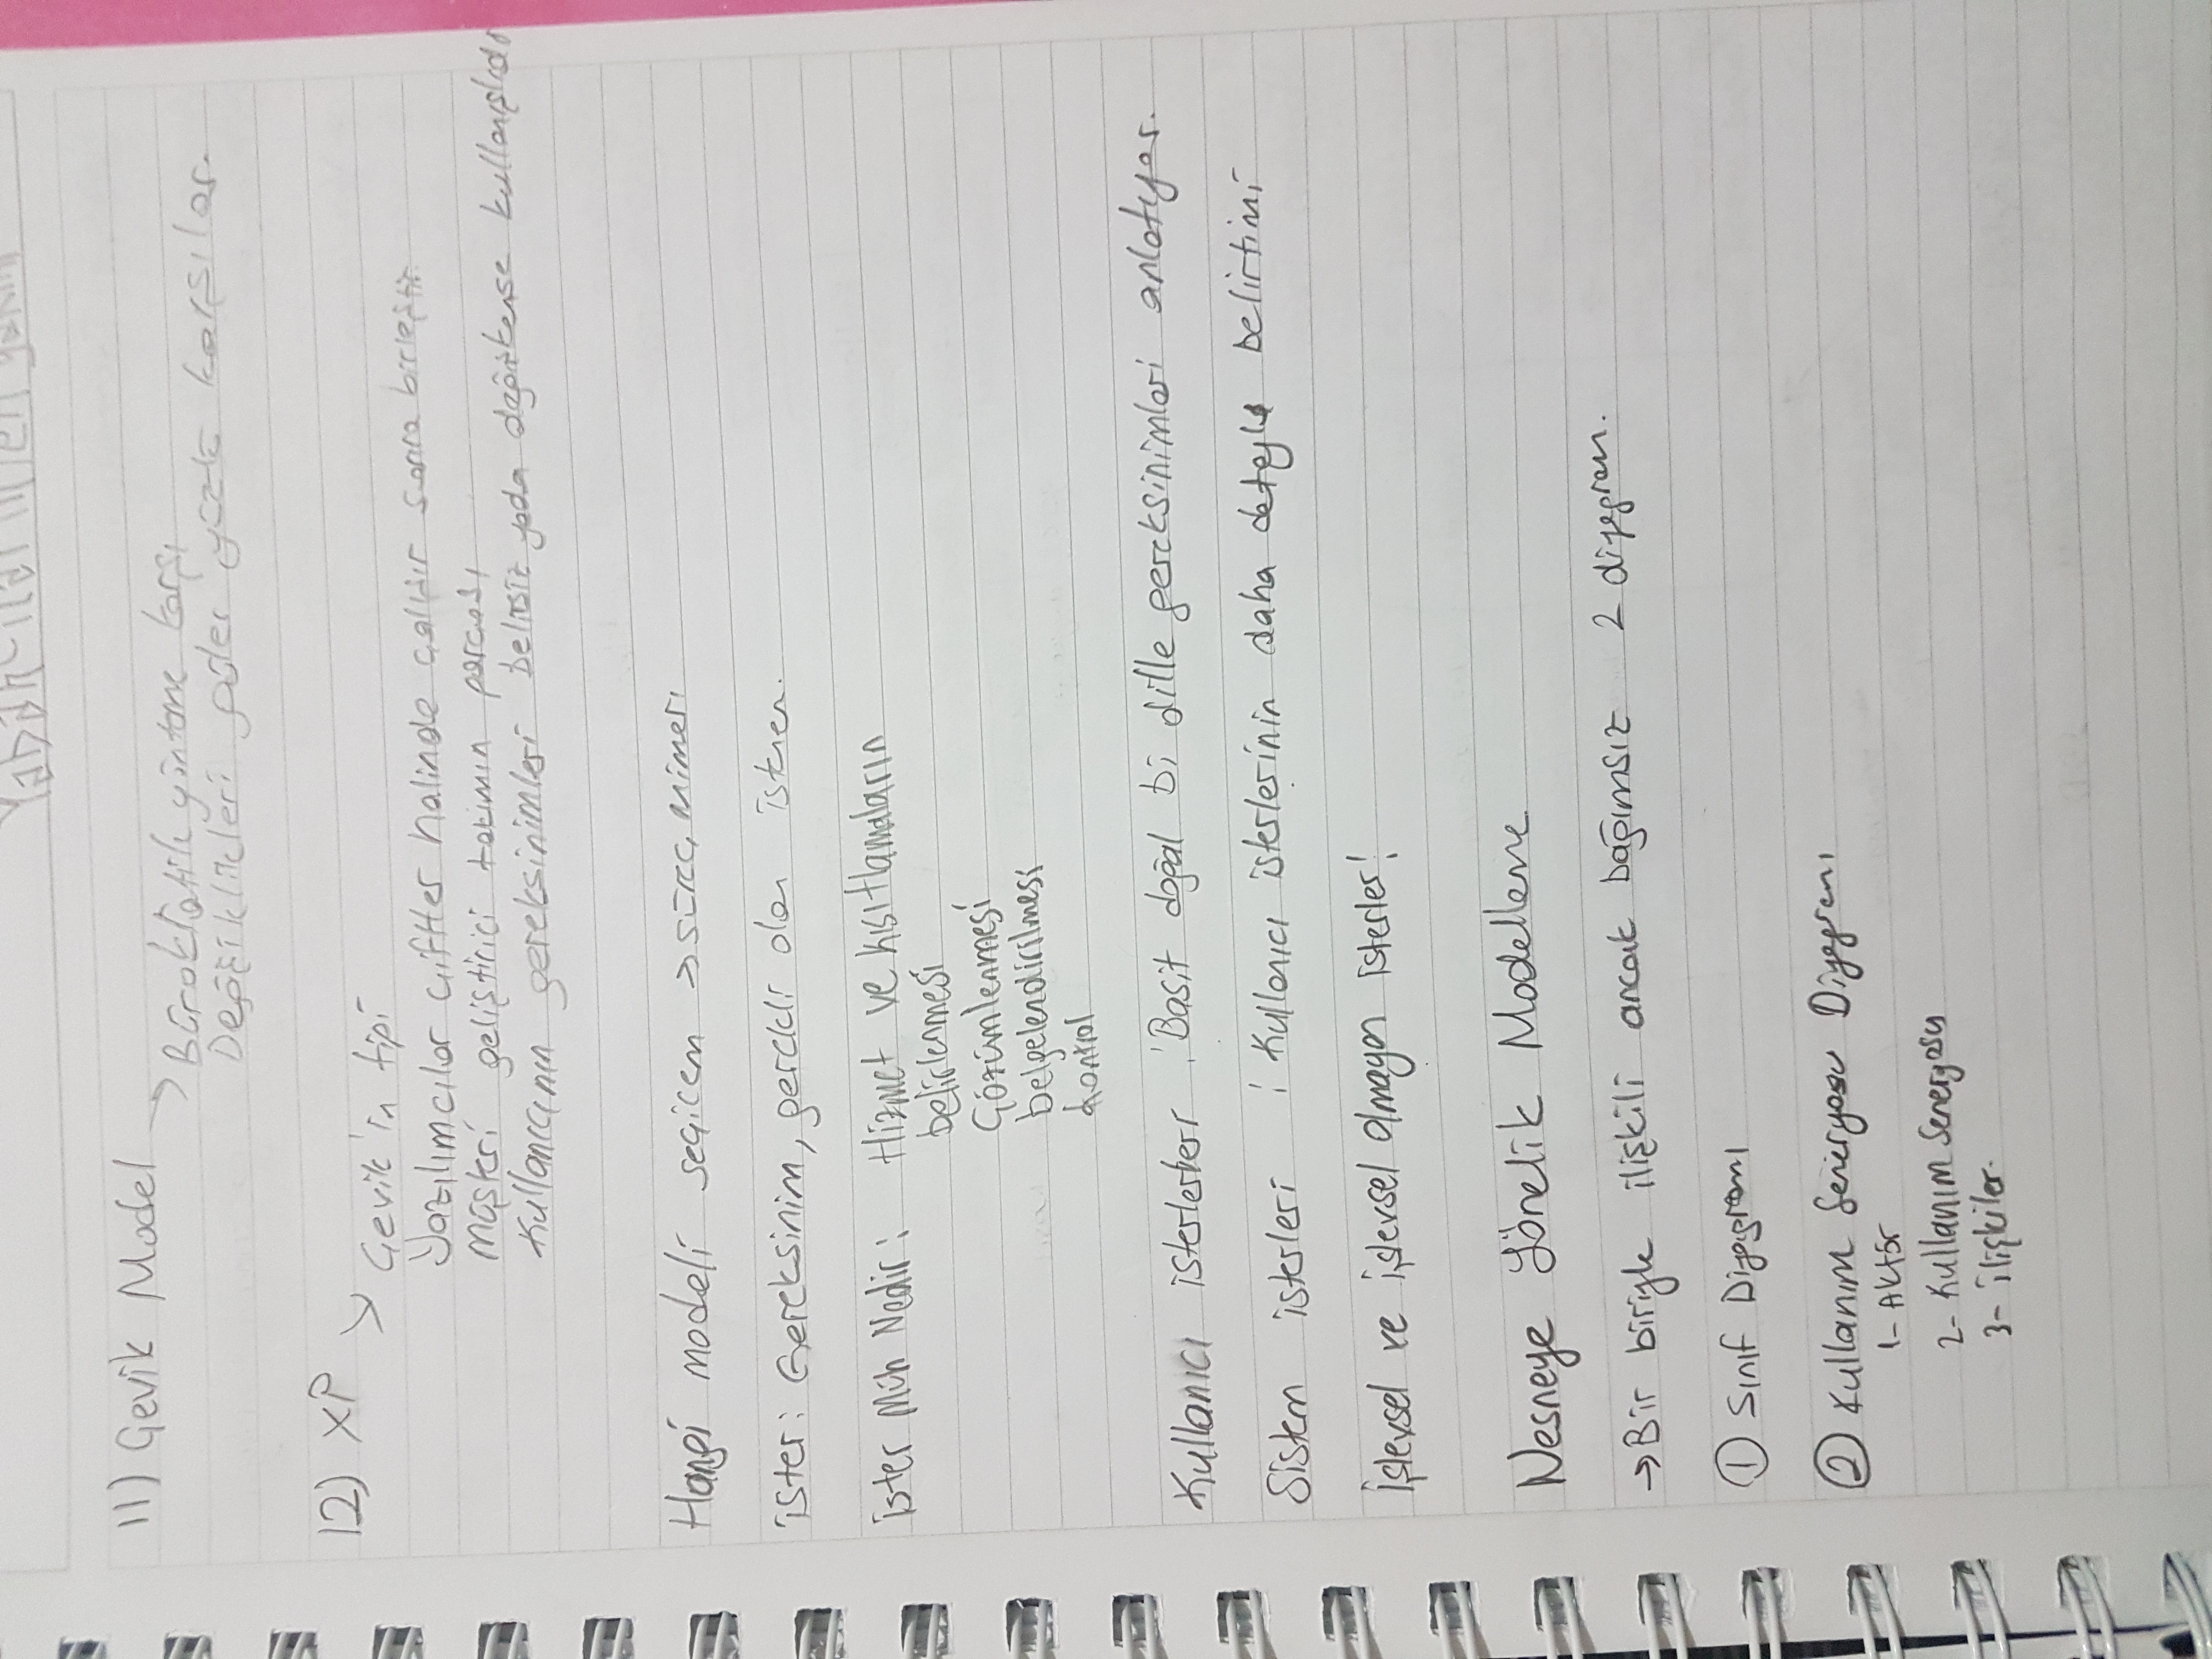 11) Çevik Model
→ Bürokratik yönteme karşı
Değişiklikleri güler yüzle karşılar.
12) XP
→ Çevik'in tipi
Yazılımcılar çiftler halinde çalışır sonra birleştir
Müşteri geliştirici takımın parçası
Kullanıcının gereksinimleri belirsiz yada değişkense kullanışlıdır
Hangi modeli seçicem → süreç mimarı
ister: Gereksinim, gerekli olan istenen.
ister Müh Nedir: Hizmet ve kısıtlamaların
belirlenmesi
Çözümlenmesi
belgelendirilmesi
kontrol
Kullanıcı : Basit doğal bi dille gereksinimleri anlatıyor.
Sistem isterleri : Kullanıcı isterlerinin daha detaylı belirtimi
İşlevsel ve işlevsel olmayan isterler!
Nesneye Yönelik Modelleme
→ Bir biriyle ilişkili ancak bağımsız 2 diyagram.
① Sınıf Diyagramı
② Kullanım Seneryosu Diyagramı
1- Aktör
2- Kullanım Seneryosu
3- ilişkiler.